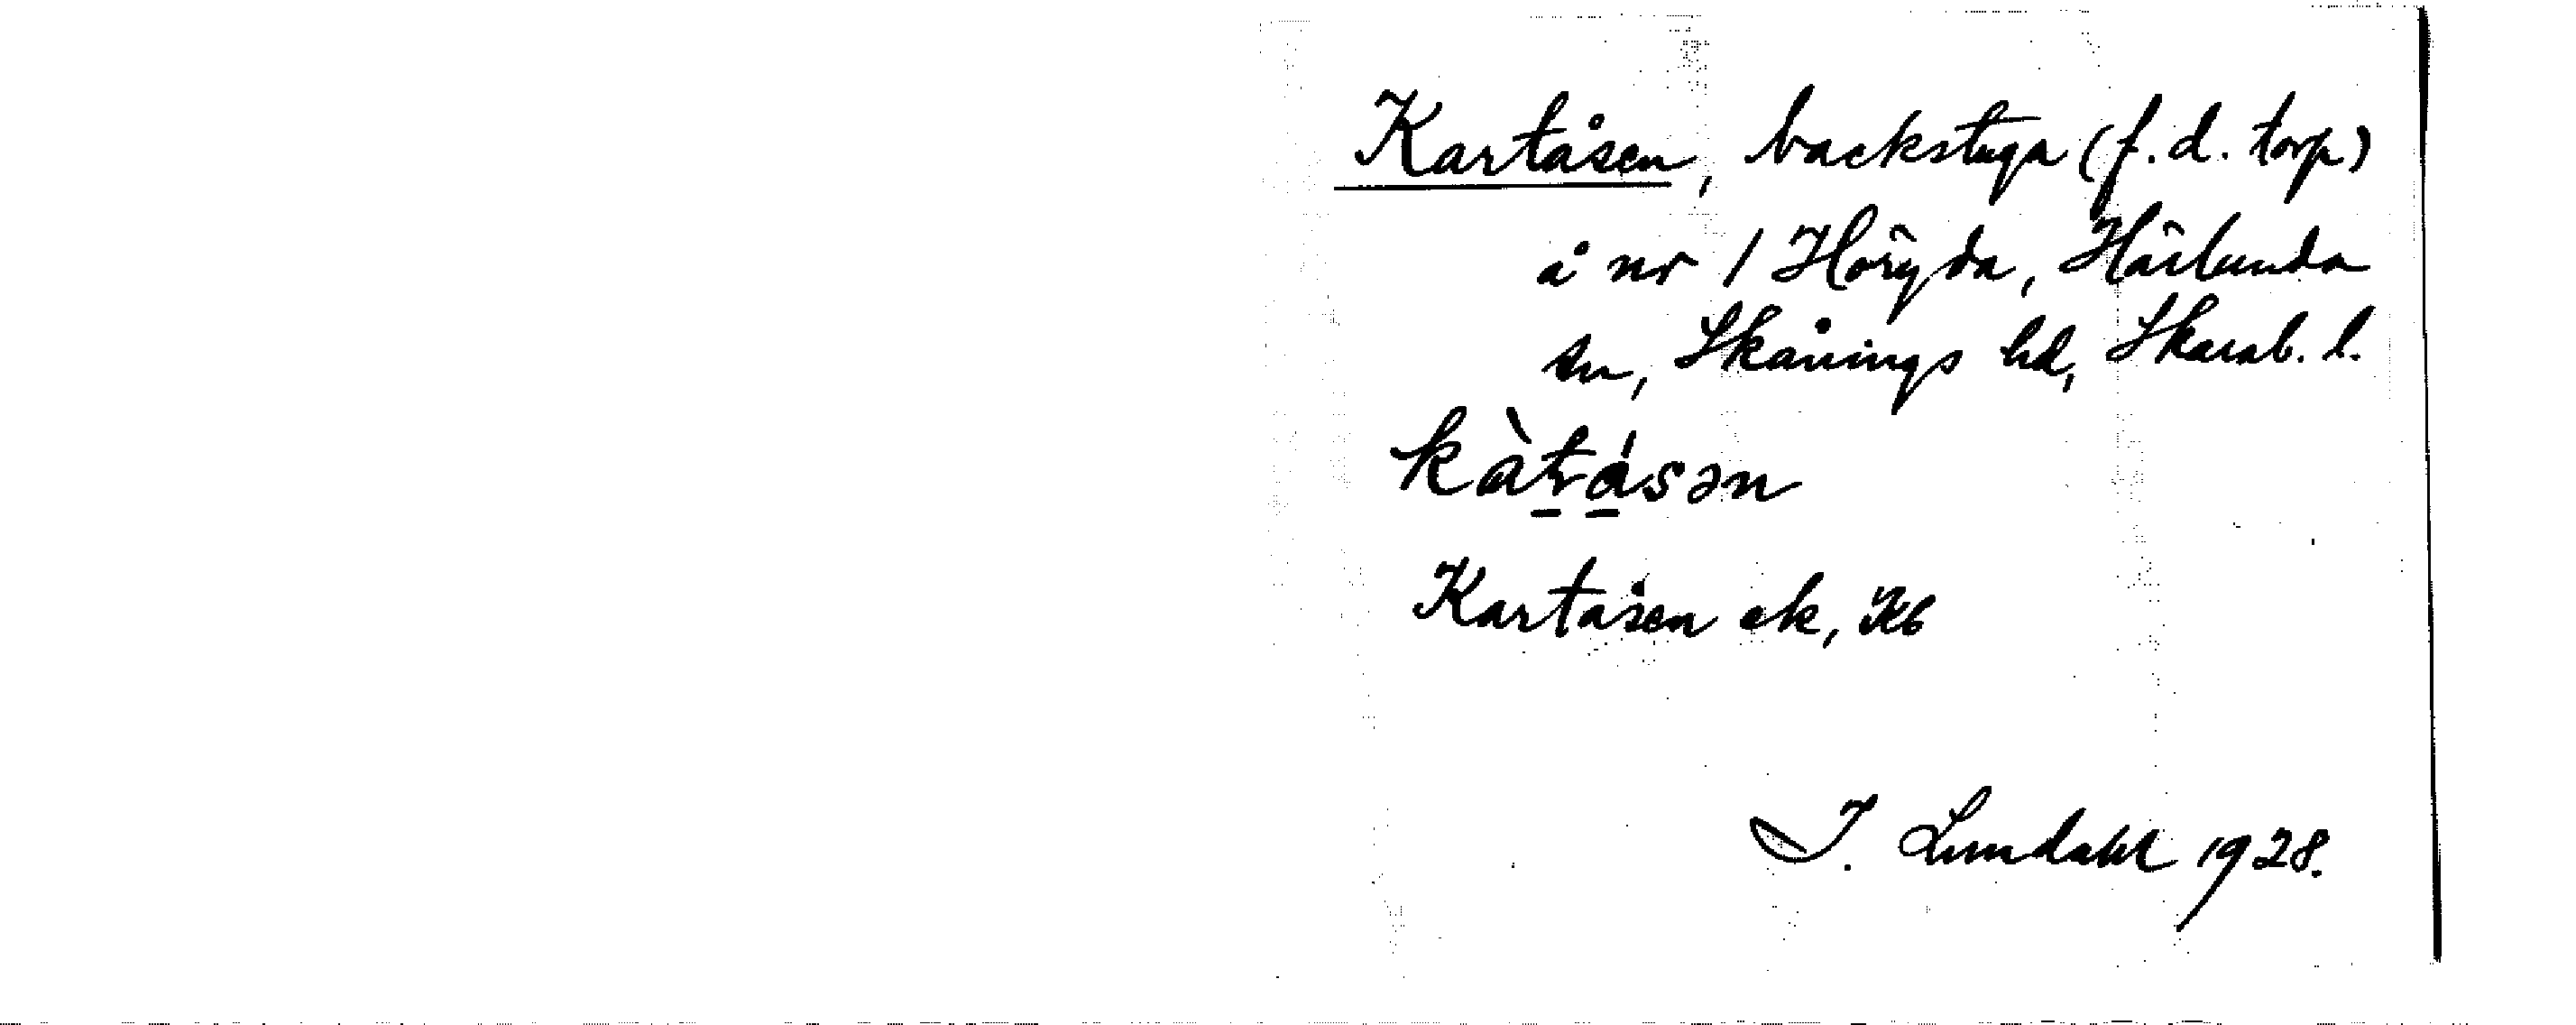 Kartåsen, backstuga (f.d. torp)
å nr 1 Höryda, Härlunda
sn, Skånings hd, Skarab. l.
kàtrásən
Kartåsen ek, Kb
I. Lundahl 1928.